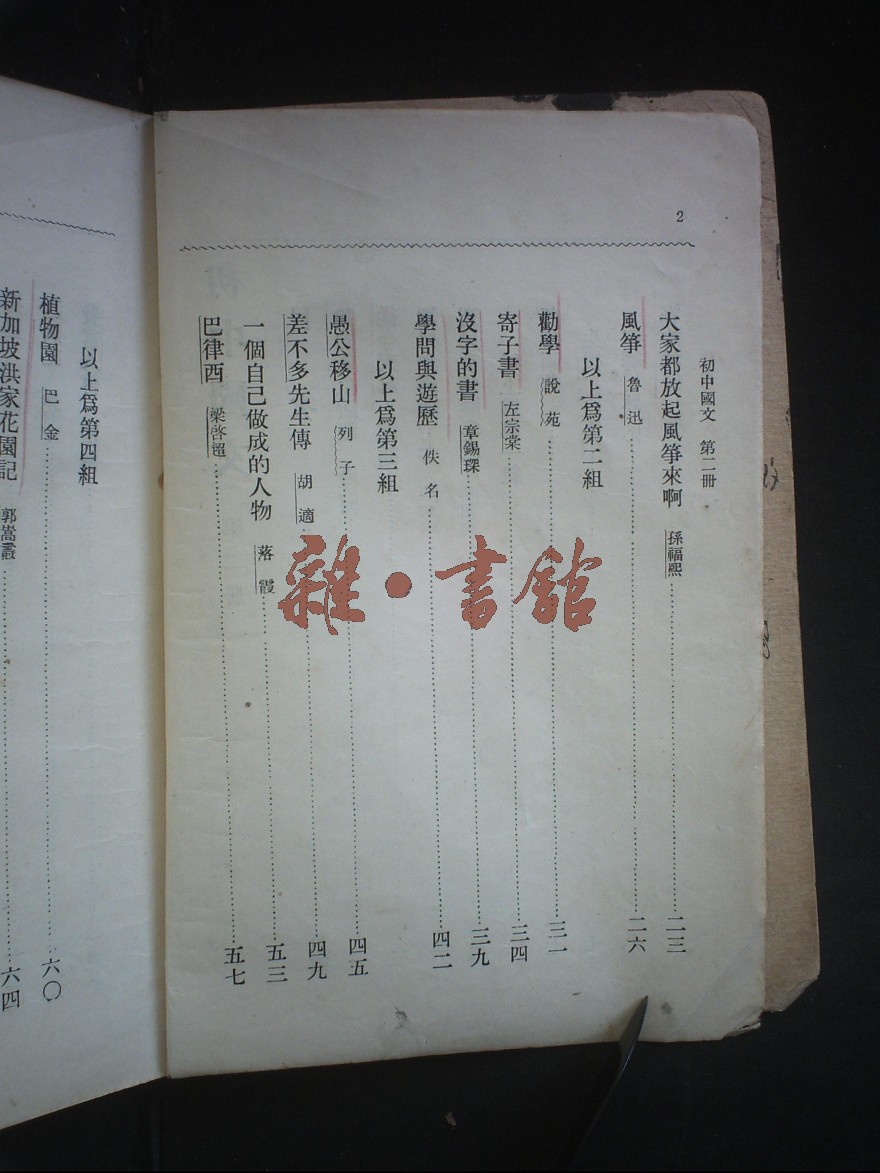 2
初中國文 第二冊
大家都放起風箏來啊 孫福熙 二三
風箏 魯迅 二六
以上爲第二組
勸學 說苑 三一
寄子書 左宗棠 三四
沒字的書 章錫琛 三九
學問與遊歷 佚名 四二
以上爲第三組
愚公移山 列子 四五
差不多先生傳 胡適 四九
一個自己做成的人物 落霞 五三
巴律西 梁啓超 五七
以上爲第四組
植物園 巴金 六〇
新加坡洪家花園記 郭嵩燾 六四
雜·書館